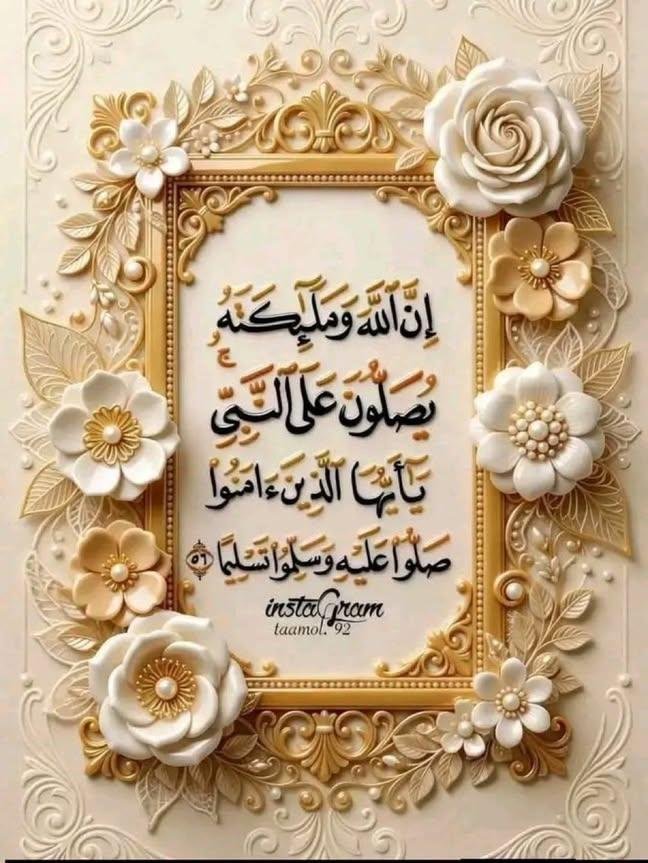 إِنَّ ٱللَّهَ وَمَلَـٰٓئِكَتَهُۥ
يُصَلُّونَ عَلَى ٱلنَّبِىِّ ۚ
يَـٰٓأَيُّهَا ٱلَّذِينَ ءَامَنُوا۟
صَلُّوا۟ عَلَيْهِ وَسَلِّمُوا۟ تَسْلِيمًا ٥٦
instaGram
taamol. 92